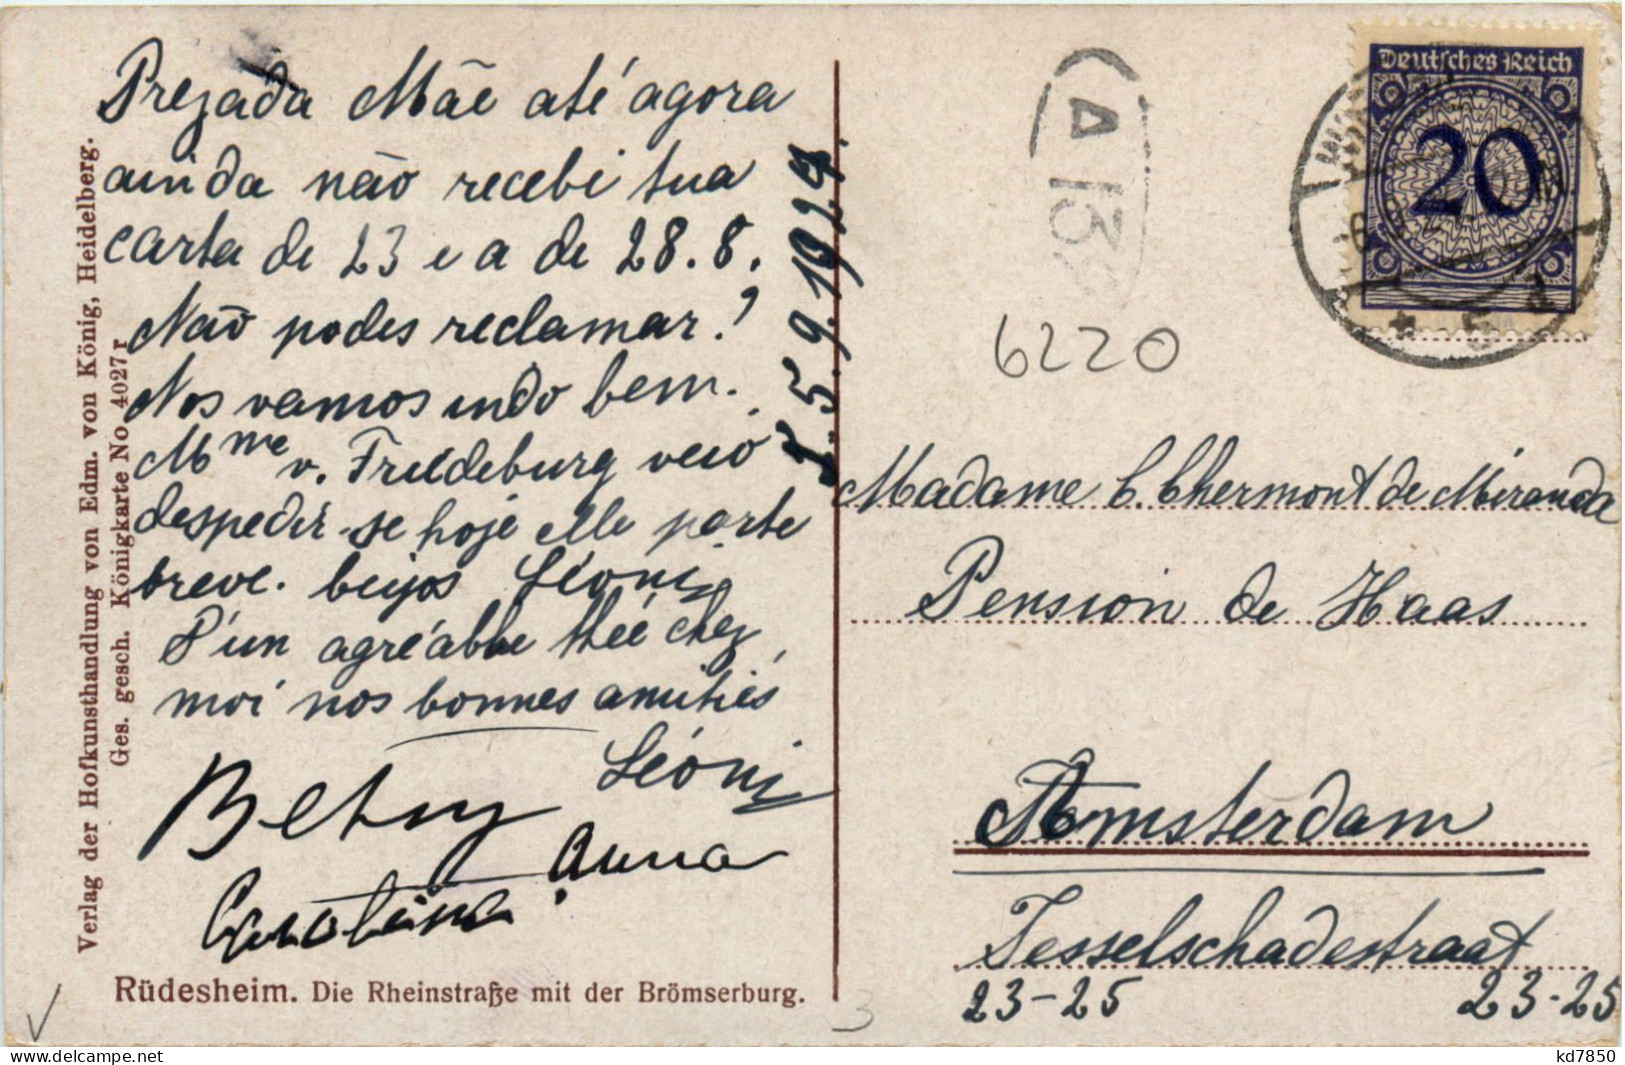 Prezada Mãe até agora
ainda não recebi tua
carta de 23 e a de 28.8.
Não podes reclamar?
Nos vamos indo bem.
Mme v. Friedeburg veio
despedir-se hoje elle parte
breve. beijos Léoni
D'un agréable thée chez
moi nos bonnes amitiés
Léoni
Betsy
Anna
Carolina
5.9.1924.
Verlag der Hofkunsthandlung von Edm. von König, Heidelberg.
Ges. gesch. Königkarte No. 4027 r
Rüdesheim. Die Rheinstraße mit der Brömserburg.
Deutsches Reich
20
6220
Madame C. Chermont de Miranda
Pension de Haas
Amsterdam
Tesselschadestraat
23-25 23-25
3
kd7850
delcampe.net